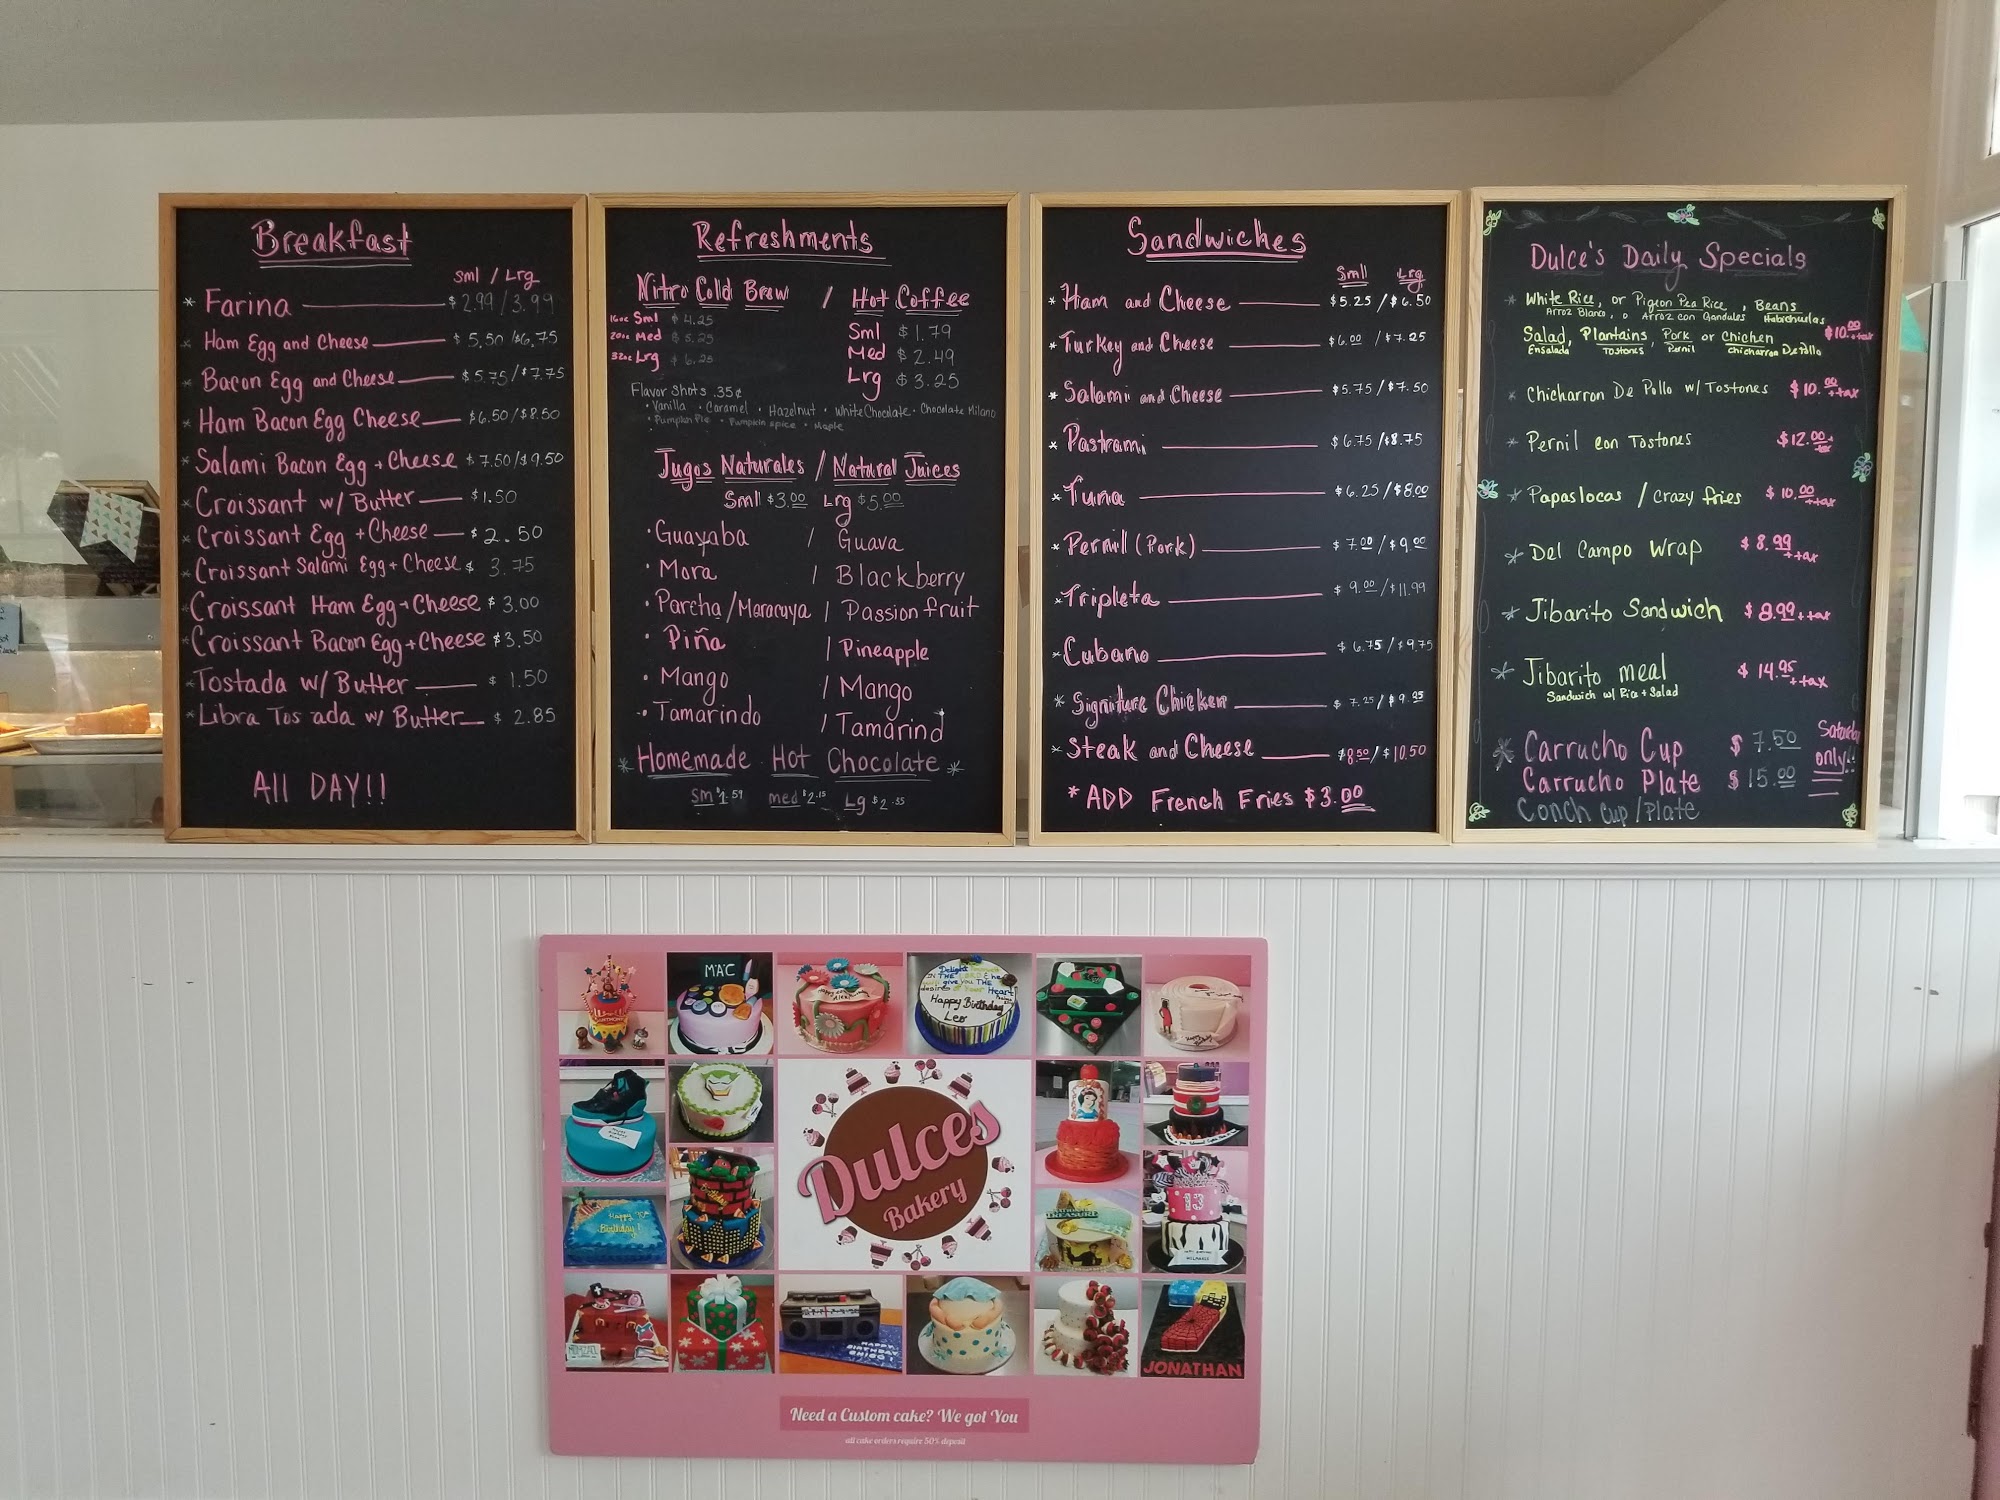 Breakfast
Sml / Lrg
* Farina $2.99/3.99
* Ham Egg and Cheese $5.50/$6.75
* Bacon Egg and Cheese $5.75/$7.75
* Ham Bacon Egg Cheese $6.50/$8.50
* Salami Bacon Egg + Cheese $7.50/$9.50
* Croissant w/ Butter $1.50
* Croissant Egg + Cheese $2.50
* Croissant Salami Egg + Cheese $3.75
* Croissant Ham Egg + Cheese $3.00
* Croissant Bacon Egg + Cheese $3.50
* Tostada w/ Butter $1.50
* Libra Tos ada w/ Butter $2.85
All DAY!!
Refreshments
Nitro Cold Brew / Hot Coffee
16oz Sml $4.25
20oz Med $5.25
32oz Lrg $6.25
Sml $1.79
Med $2.49
Lrg $3.25
Flavor Shots .35¢
• Vanilla • Caramel • Hazelnut • White Chocolate • Chocolate Milano
• Pumpkin Pie • Pumpkin spice • Maple
Jugos Naturales / Natural Juices
Smll $3.00 Lrg $5.00
• Guayaba / Guava
• Mora / Blackberry
• Parcha/Maracuya / Passion fruit
• Piña / Pineapple
• Mango / Mango
• Tamarindo / Tamarind
* Homemade Hot Chocolate *
Sm $1.59 med $2.15 Lg $2.55
Sandwiches
Smll Lrg
* Ham and Cheese $5.25/$6.50
* Turkey and Cheese $6.00/$7.25
* Salami and Cheese $5.75/$7.50
* Pastrami $6.75/$8.75
* Tuna $6.25/$8.00
* Pernil (Pork) $7.00/$9.00
* Tripleta $9.00/$11.99
* Cubano $6.75/$9.75
* Signiture Chicken $7.25/$9.25
* Steak and Cheese $8.50/$10.50
* ADD French Fries $3.00
Dulce's Daily Specials
* White Rice, or Pigeon Pea Rice, Beans
Arroz Blanco, o Arroz con Gandules Habichuelas
Salad, Plantains, Pork or Chichen $10.00 + tax
Ensalada Tostones Pernil Chicharron De Pollo
* Chicharron De Pollo w/ Tostones $10.00 + tax
* Pernil con Tostones $12.00 + tax
* Papas locas / Crazy fries $10.00 + tax
* Del Campo Wrap $8.99 + tax
* Jibarito Sandwich $8.99 + tax
* Jibarito meal $14.95 + tax
Sandwich w/ Rice + Salad
* Carrucho Cup $7.50
Carrucho Plate $15.00
Saturday only!!
Conch Cup/Plate
MAC
Happy Birthday
Leo
Happy
Birthday!
Dulces
Bakery
13
HAPPY
BIRTHDAY
JONATHAN
Need a Custom cake? We got You
all cake orders require 50% deposit